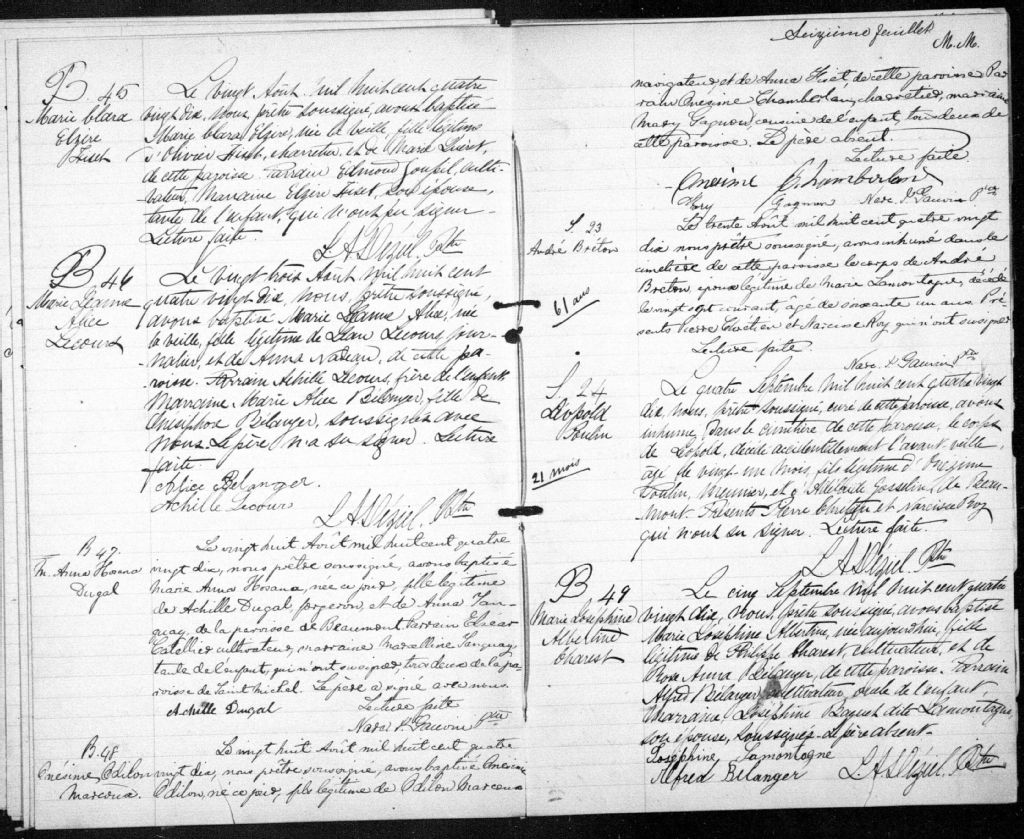 B. 45
Marie Clara
Elzire
Fiset
Le vingt Août mil huit cent quatre
vingt dix, Nous, prêtre soussigné, avons baptisé
Marie Clara Elzire, née la veille, fille légitime
d'Olivier Fiset, charretier, et de Marie
de cette paroisse. Parrain Edmond Goupil, culti-
vateur, Marraine Elzire Fiset, son épouse,
tante de l'enfant, qui n'ont pu signer.
Lecture faite.
L A Déziel. Ptre
B 46
Marie Leanne
Alice
Lecours
Le vingt trois Août, mil huit cent
quatre vingt dix, Nous, prêtre soussigné,
avons baptisé Marie Leanne Alice, née
la veille, fille légitime de Jean Lecours, jour-
nalier, et de Anna Nadeau, de cette pa-
roisse. Parrain Achille Lecours, frère de l'enfant
Marraine Marie Alice Bélanger, fille de
Onésiphore Bélanger, soussignés avec
Nous. Le père n'a su signer. Lecture
faite.
Alice Belanger.
Achille Lecours
L A Déziel. Ptre
B 47.
M. Anna Hosana
Dugal
Le vingt huit Août mil huit cent quatre
vingt dix, nous prêtre soussigné, avons baptisé
Marie Anna Hosana, née ce jour, fille légitime
de Achille Dugal, forgeron, et de Anna Tan-
guay, de la paroisse de Beaumont Parrain Elzéar
Catellier cultivateur, marraine Marcelline Tanguay
tante de l'enfant, qui n'ont su signer, tous deux de la pa-
roisse de Saint Michel. Le père a signé avec nous.
Lecture faite
Achille Dugal
Narc. P. Gauvin Ptre
B. 48
Onésime Odilon
Marcoux.
Le vingt huit Août mil huit cent quatre
vingt dix, nous prêtre soussigné, avons baptisé Onésime
Odilon, né ce jour, fils légitime de Odilon Marcoux
Seizième feuillet
M. M.
navigateur et de Anna Fiset de cette paroisse Par-
rain Onésime Chamberlan, charretier, marraine
Mary Gagnon, cousine de l'enfant, tous deux de
cette paroisse. Le père absent.
Lecture faite.
Onesime Chamberlan
Mary Gagnon Narc. P. Gauvin Ptre
S. 23
André Breton
61 ans
Le trente Août mil huit cent quatre vingt
dix nous prêtre soussigné, avons inhumé dans le
cimetière de cette paroisse le corps de André
Breton, époux légitime de Marie Lamontagne, décédé
le vingt sept courant, âgé de soixante un ans. Pré-
sents Pierre Chrétien et Narcisse Roy qui n'ont su signer
Lecture faite.
Narc. P. Gauvin Ptre
S. 24
Léopold
Poulin
21 mois
Le quatre Septembre mil huit cent quatre vingt
dix, Nous, prêtre soussigné, curé de cette paroisse, avons
inhumé, dans le cimetière de cette paroisse, le corps
de Léopold, décédé accidentellement l'avant veille,
âgé de vingt-un mois, fils légitime d'Onésime
Poulin, Meunier, et d'Adélaïde Gosselin, de Beau-
mont. Présents Pierre Chrétien et Narcisse Roy
qui n'ont su signer. Lecture faite.
L A Déziel. Ptre
B 49
Marie Joséphine
Albertine
Charest
Le cinq Septembre mil huit cent quatre
vingt dix, Nous, prêtre soussigné, avons baptisé
Marie Joséphine Albertine, née aujourd'hui, fille
légitime de Philippe Charest, cultivateur, et de
Rose Anna Bélanger, de cette paroisse. Parrain
Alfred Bélanger, cultivateur, oncle de l'enfant,
Marraine Joséphine Baquet dite Lamontagne,
son épouse, soussignés. Le père absent.
Joséphine Lamontagne
Alfred Bélanger L A Déziel. Ptre